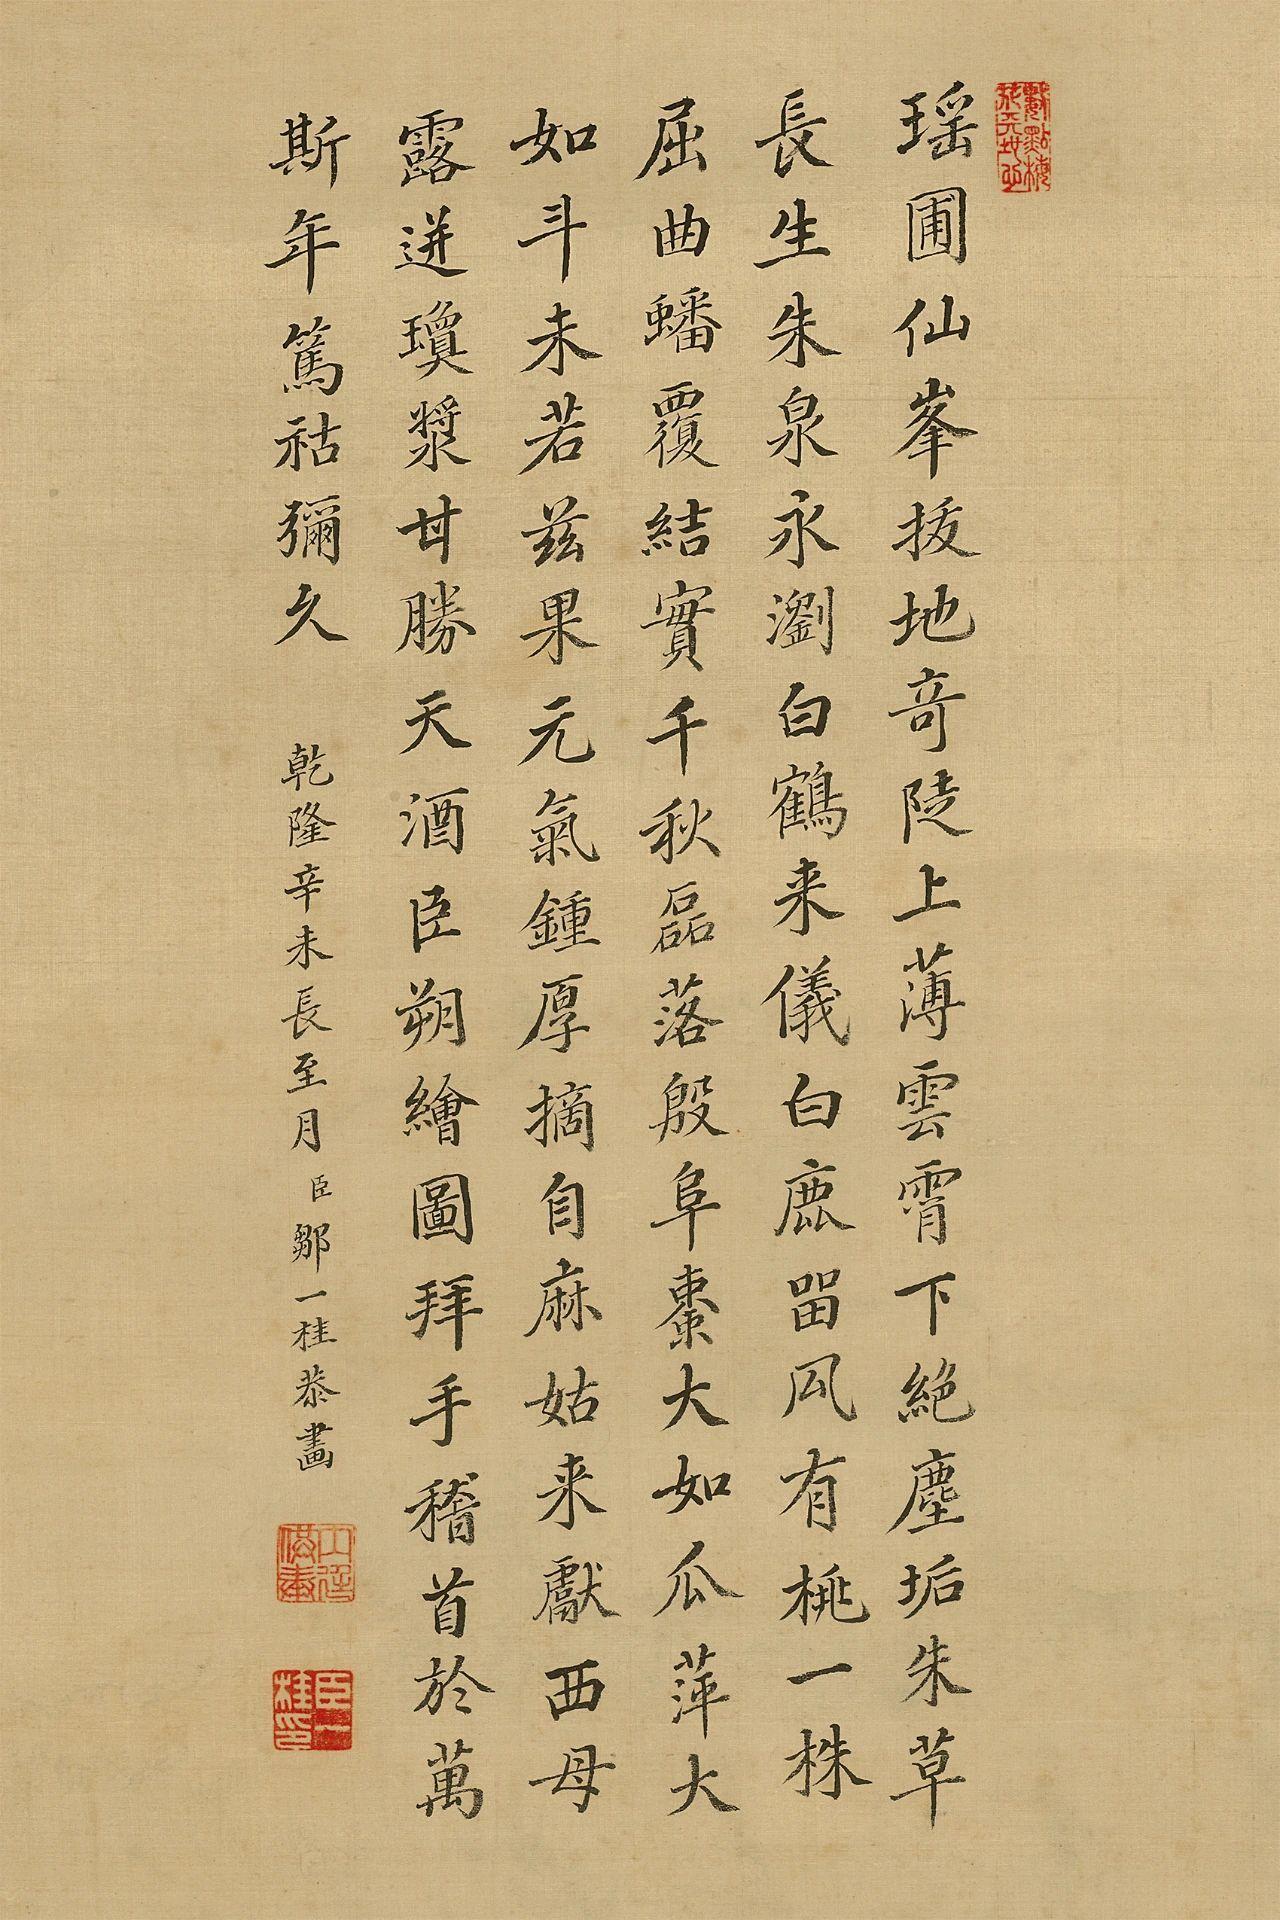 數點梅花天地心
瑶圃仙峯拔地竒陡上薄雲霄下絶塵垢朱草
長生朱泉永瀏白鶴来儀白鹿畱有桃一株
屈曲蟠覆結實千秋磊落殷阜棗大如瓜萍大
如斗未若兹果元氣鍾厚摘自麻姑来獻西母
露迸瓊漿甘勝天酒臣朔繪圖拜手稽首於萬
斯年篤祜彌久 乾隆辛未長至月臣鄒一桂恭畫
臣一桂印